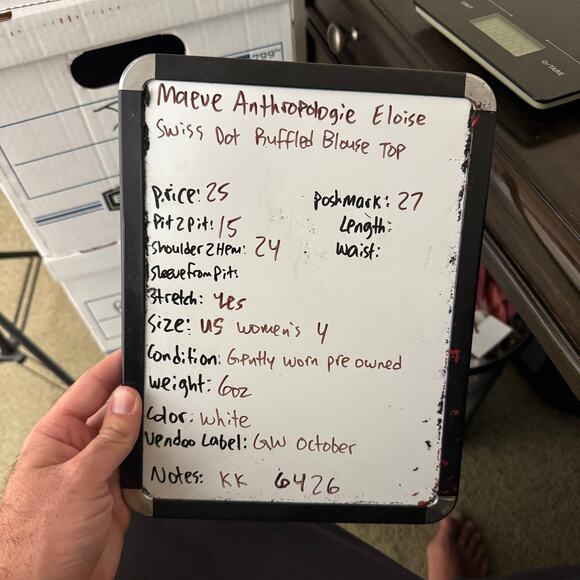 Maeve Anthropologie Eloise
Swiss Dot Ruffled Blouse Top
Price: 25
Poshmark: 27
Pit 2 Pit: 15
Length:
Shoulder 2 Hem: 24
Waist:
Sleeve from Pits
Stretch: Yes
Size: US Women's 4
Condition: Gently worn pre owned
Weight: 6oz
Color: White
Vendoo Label: GW October
Notes: KK 6426
O/TARE
UNIT